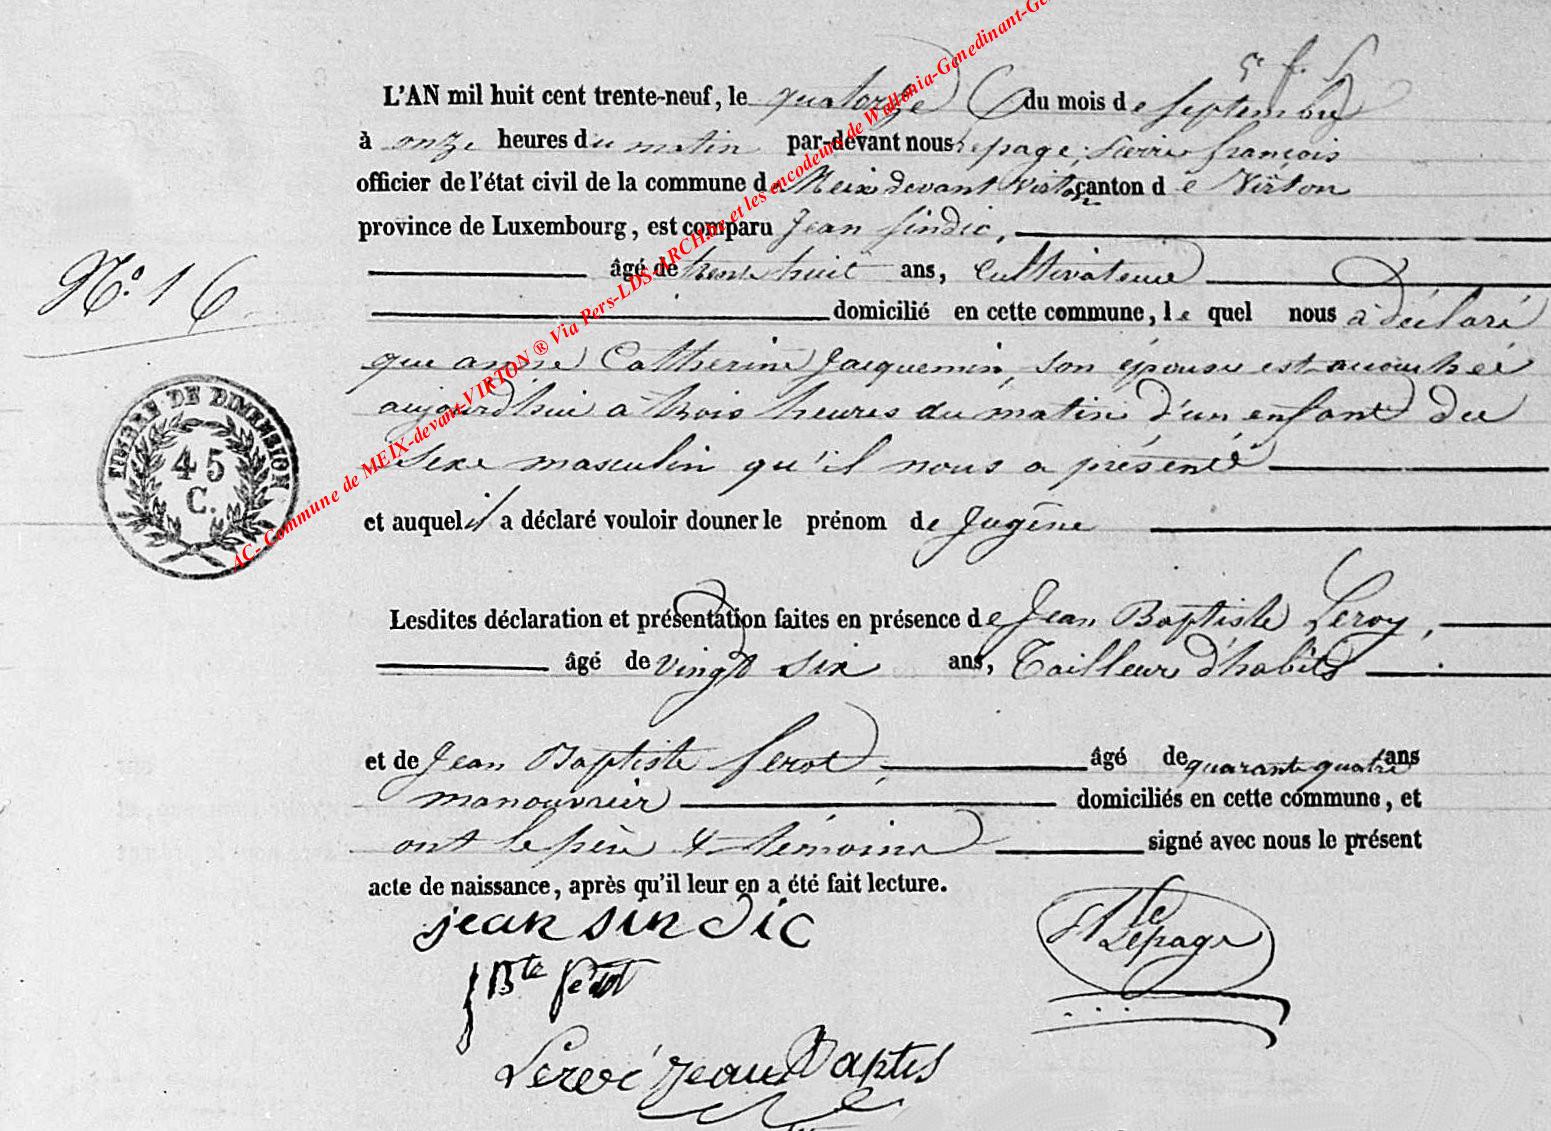 5e f. S
L'AN mil huit cent trente-neuf, le quatorze du mois de septembre
à onze heures du matin par-devant nous Lepage, Pierre françois
officier de l'état civil de la commune de Meix devant Virton canton de Virton
province de Luxembourg, est comparu Jean Sindic,
N°. 16
âgé de trente huit ans, Cultivateur
domicilié en cette commune, le quel nous a déclaré
que anne Catherine Jacquemin, son épouse est accouchée
aujourd'hui a trois heures du matin d'un enfant du
sexe masculin qu'il nous a présenté
TIMBRE DE DIMENSION
45
C.
et auquel il a déclaré vouloir donner le prénom de Jugène
Lesdites déclaration et présentation faites en présence de Jean Baptiste Leroy,
âgé de vingt six ans, Tailleur d'habits
et de Jean Baptiste ferot, âgé de quarante quatre ans
manouvrier domiciliés en cette commune, et
ont le père & témoins signé avec nous le présent
acte de naissance, après qu'il leur en a été fait lecture.
jean sindic
JBte ferot
Lepage
Jean Baptis
AC- Commune de MEIX-devant-VIRTON ® Via Pers-LDS-ARCH.be et les encodeurs de Wallonia-Genedinant-Ge